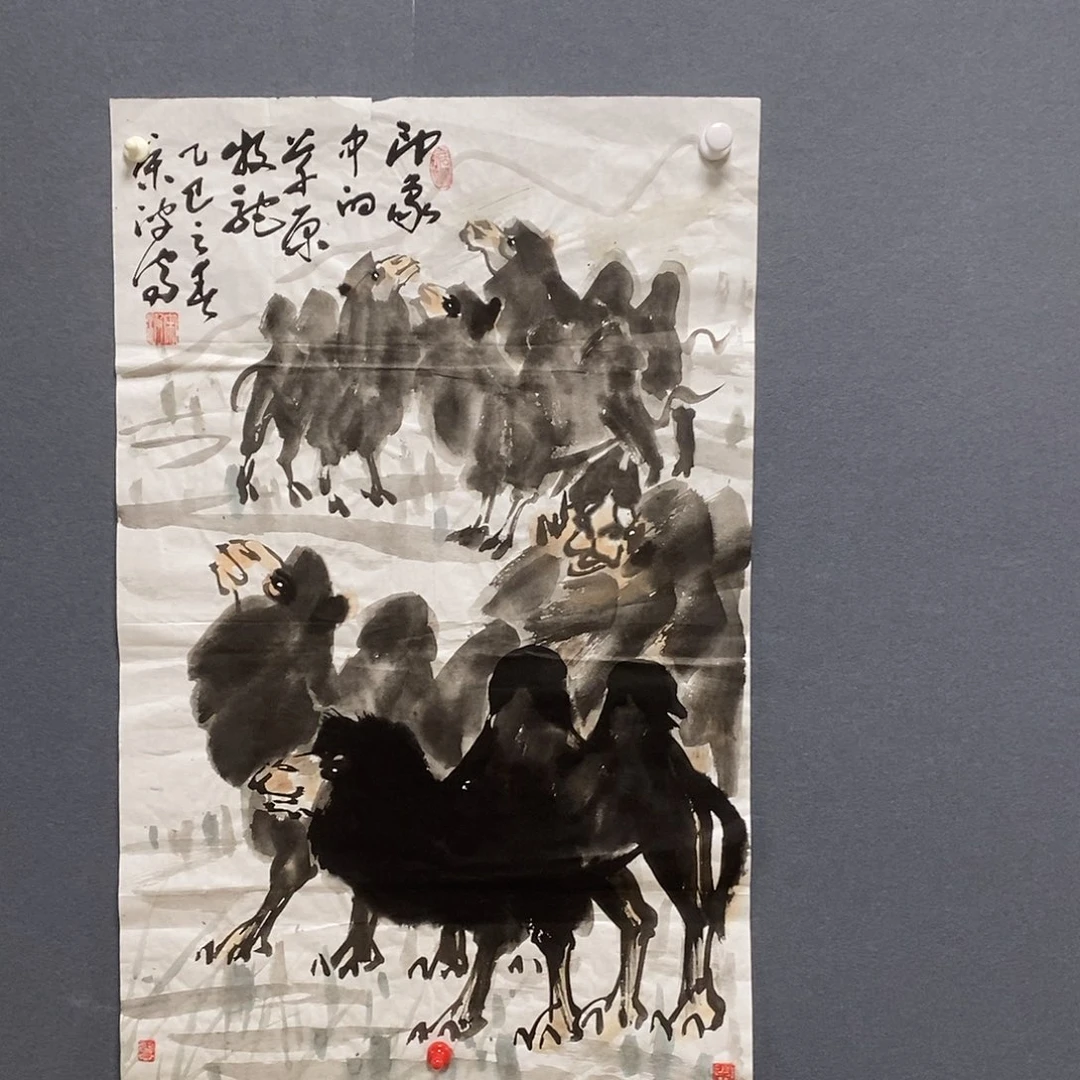 印象
中的
草原
牧驼
乙巳之春
宋波写